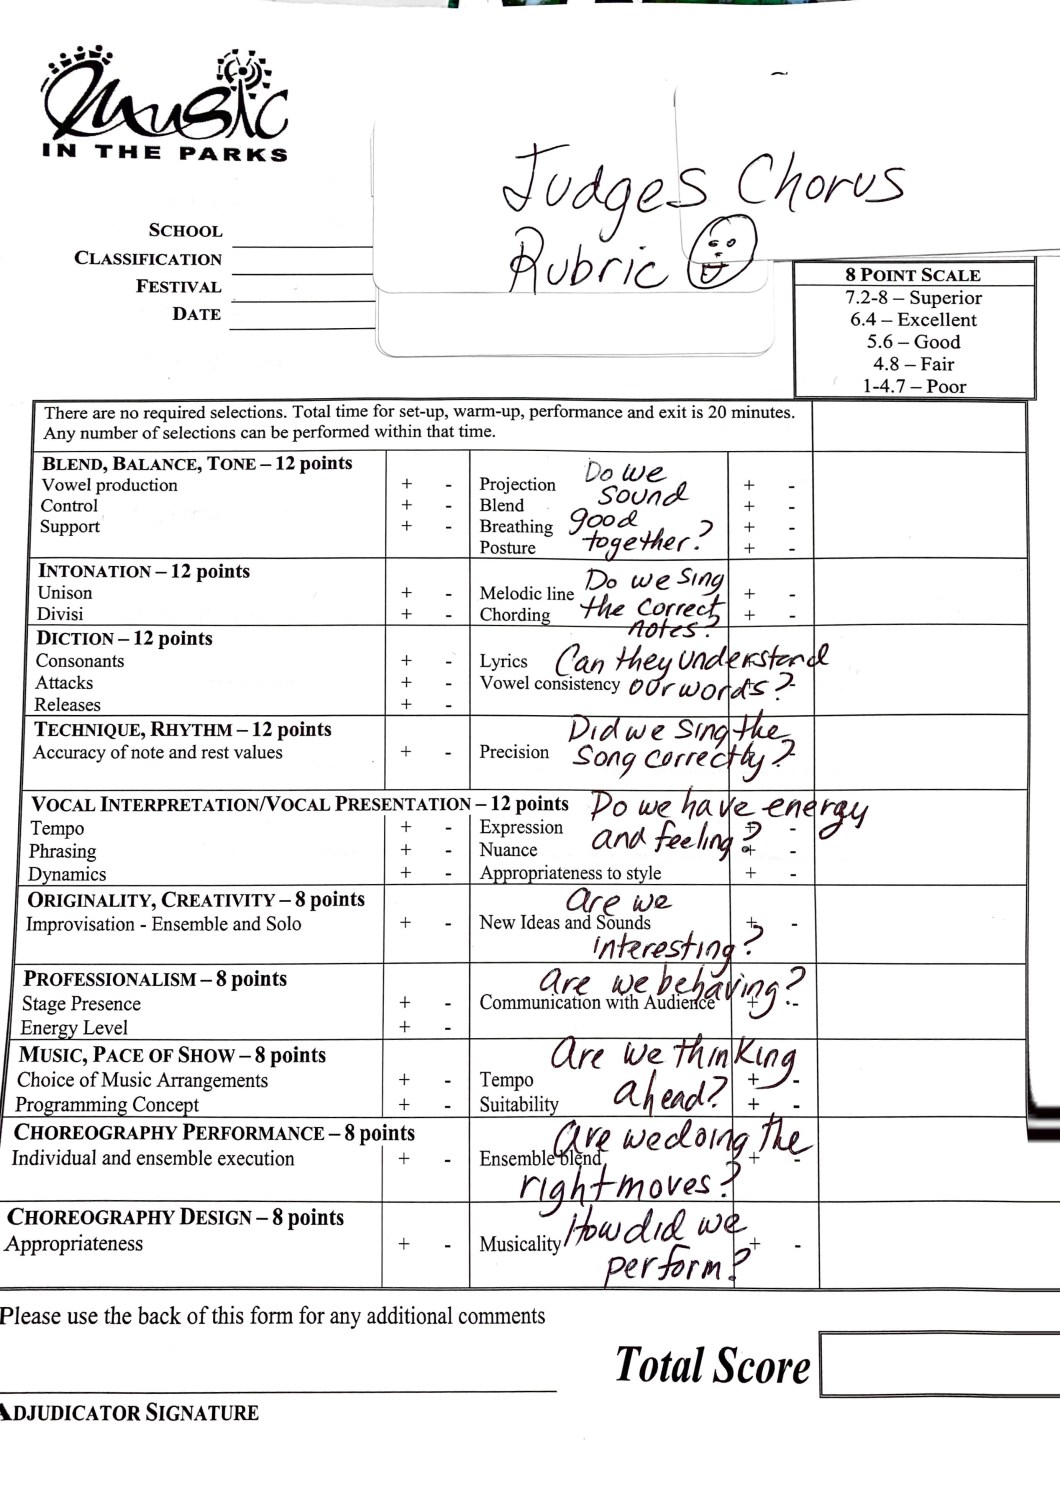 Music
IN THE PARKS
Judges Chorus
Rubric
SCHOOL
CLASSIFICATION
FESTIVAL
DATE
8 POINT SCALE
7.2-8 – Superior
6.4 – Excellent
5.6 – Good
4.8 – Fair
1-4.7 – Poor
There are no required selections. Total time for set-up, warm-up, performance and exit is 20 minutes.
Any number of selections can be performed within that time.
BLEND, BALANCE, TONE – 12 points
Vowel production + -
Control + -
Support + -
Projection + -
Blend + -
Breathing + -
Posture + -
Do we
sound
good
together?
INTONATION – 12 points
Unison + -
Divisi + -
Melodic line + -
Chording + -
Do we sing
the correct
notes?
DICTION – 12 points
Consonants + -
Attacks + -
Releases + -
Lyrics
Vowel consistency
Can they understand
our words?
TECHNIQUE, RHYTHM – 12 points
Accuracy of note and rest values + -
Precision
Did we sing the
song correctly?
VOCAL INTERPRETATION/VOCAL PRESENTATION – 12 points
Tempo + -
Phrasing + -
Dynamics + -
Expression + -
Nuance + -
Appropriateness to style + -
Do we have energy
and feeling?
ORIGINALITY, CREATIVITY – 8 points
Improvisation - Ensemble and Solo + -
New Ideas and Sounds + -
Are we
interesting?
PROFESSIONALISM – 8 points
Stage Presence + -
Energy Level + -
Communication with Audience + -
Are we behaving?
MUSIC, PACE OF SHOW – 8 points
Choice of Music Arrangements + -
Programming Concept + -
Tempo + -
Suitability + -
Are we thinking
ahead?
CHOREOGRAPHY PERFORMANCE – 8 points
Individual and ensemble execution + -
Ensemble blend + -
Are we doing the
right moves?
CHOREOGRAPHY DESIGN – 8 points
Appropriateness + -
Musicality + -
How did we
perform?
Please use the back of this form for any additional comments
Total Score
ADJUDICATOR SIGNATURE